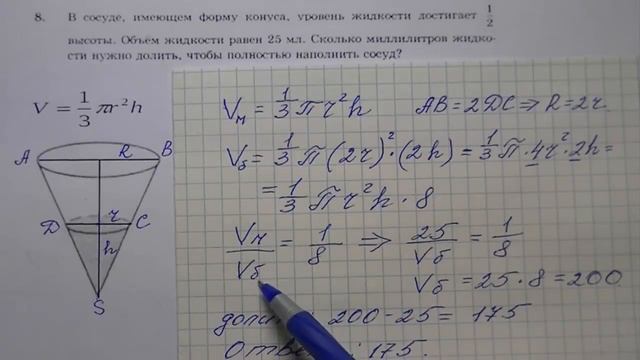 8. В сосуде, имеющем форму конуса, уровень жидкости достигает 1/2
высоты. Объём жидкости равен 25 мл. Сколько миллилитров жидко-
сти нужно долить, чтобы полностью наполнить сосуд?
V = 1/3 πr²h
A R B
D r C
h
S
Vм = 1/3 πr²h AB = 2DC ⇒ R = 2r
Vб = 1/3 π(2r)²·(2h) = 1/3 π·4r²·2h =
= 1/3 πr²h·8
Vм/Vб = 1/8 ⇒ 25/Vб = 1/8
Vб = 25·8 = 200
200 - 25 = 175
: 175.